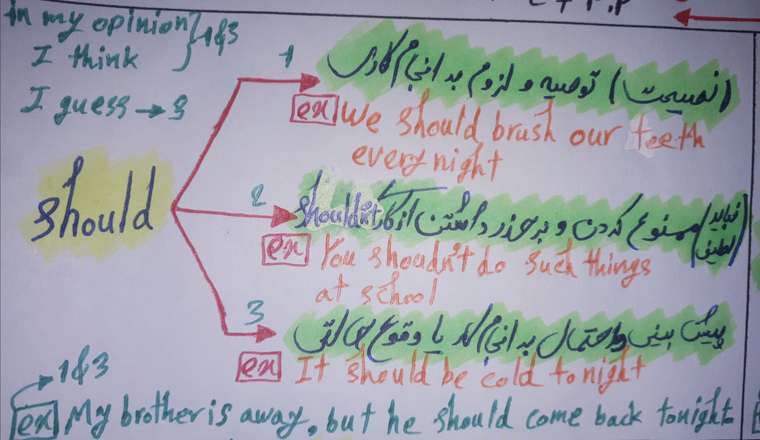 in my opinion
I think
1&3
I guess → 3
should
1
(نصیحت) توصیه و لزوم به انجام کاری
ex We should brush our teeth
every night
2
(نباید لطیف) ممنوع کردن و برحذر داشتن از کار shouldn't
ex You shoudn't do such things
at school
3
پیش بینی واحتمال به انجام کار یا وقوع حالتی
ex It should be cold tonight
1&3
ex My brother is away, but he should come back tonight.